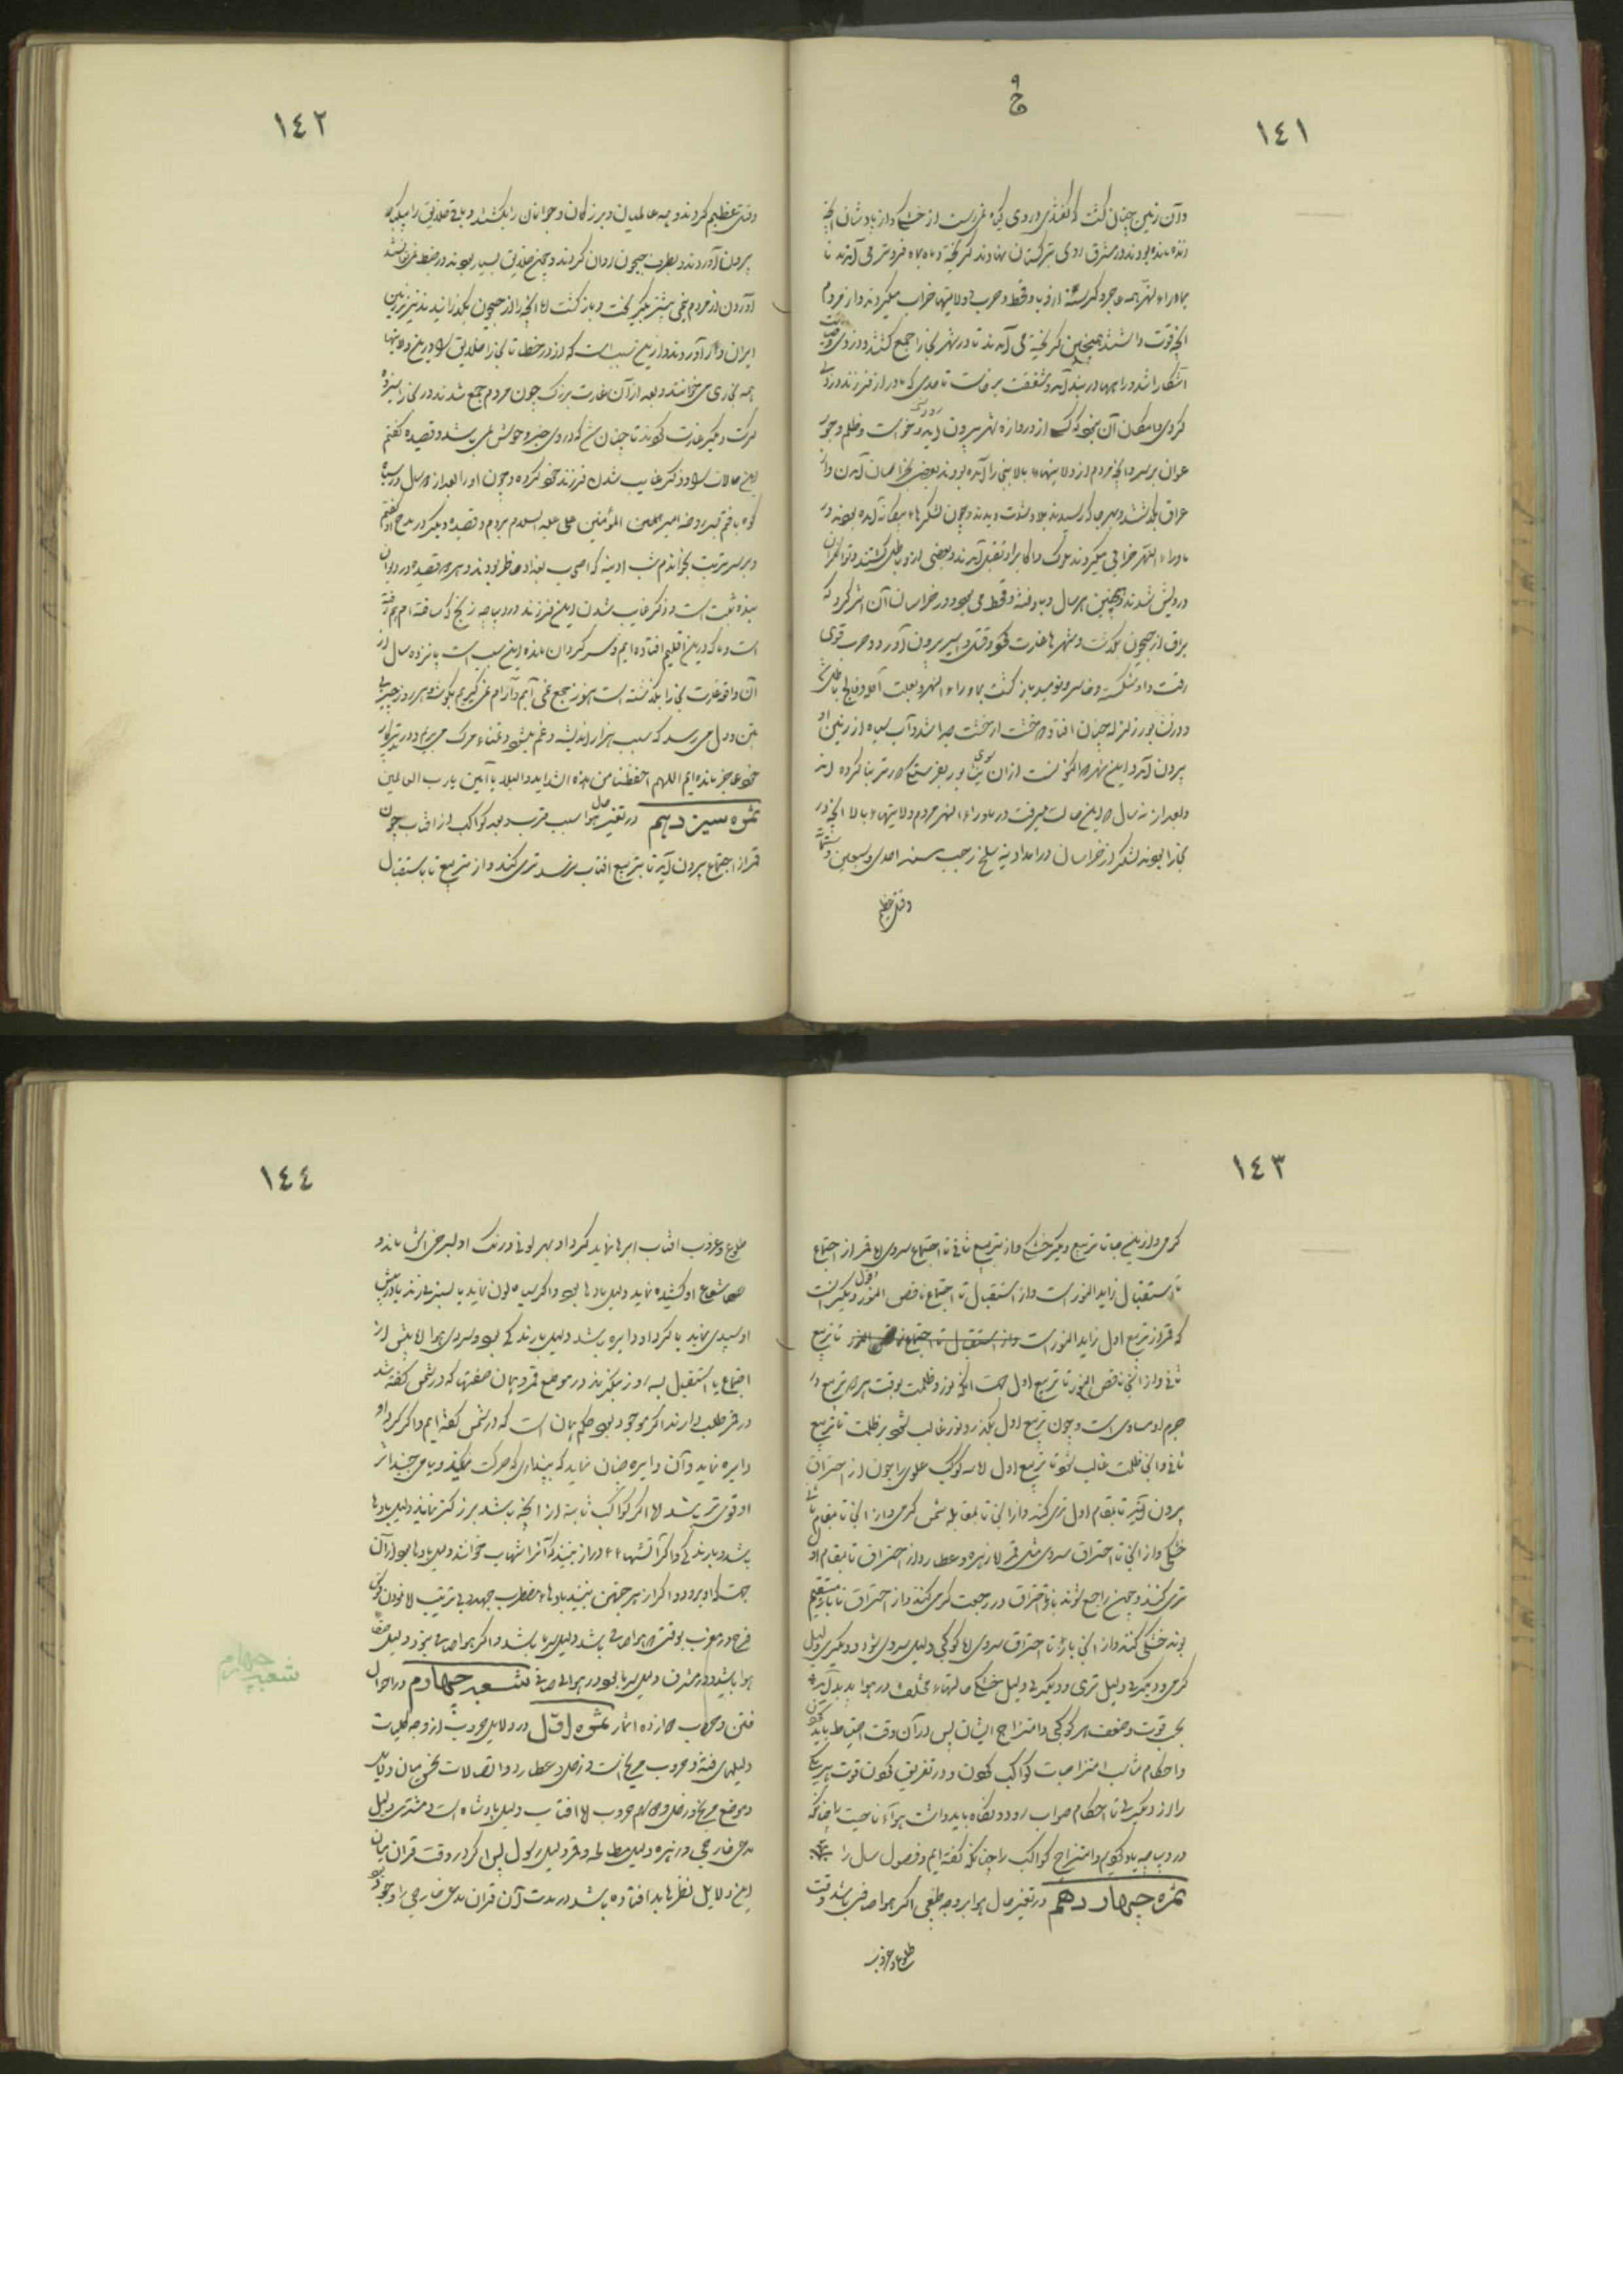 ١٤١
وآن زمین چنان گشت که گفتی در وی گیاه نمی رست از خشکی و از پادشاهان آنچه
زنده مانده بودند در مشرق روی بترکستان نهادند گریخته و ماه بماه فروتر می آمدند تا
بماوراء النهر همه عاجز و گرسنه از وبا و قحط و حرب و ولایتها خراب میکردند و از مردم
آنچه قوت داشتند همچنین گریخته می آمدند تا در شهر بخارا جمع گشتند و دزدی
آشکارا شد و راهها در بند آمد و شفقت برخاست تا حدی که مادر از فرزند دزدی
کردی و امکان آن نبود که کسی از دروازه شهر بیرون آید و خواست و ظلم و جور
عوان بر سر و آنچه مردم از ولایتهاء بالا بخارا آمده بودند بعضی بخراسان آمدن و از
عراق بگذشتند و بهر جا که رسیدند بلا و شدت دیدند و چون لشکرهاء بیگانه آمده بودند و در
ماوراء النهر خرابی میکردند ملوک و اکابر او تفرقه آمدند و بعضی از وبا هلاک گشتند و توانگران
درویش شدند و همچنین هر سال وبا و فتنه و قحط می بود و در خراسان آن اثر کرد که
براق از جیحون بگذشت و شهرها غارت کرد و قتل و اسیر بیرون آورد و حرب قوی
رفت و او شکسته و خاسر و نومید باز گشت بماوراء النهر و بعلت آکله و فالج هلاک شد
و در نشابور زلزله چنان افتاد که خشت از خشت جدا شد و آب سیاه از زمین او
بیرون آمد و این شهر که اکنونست از آن سوی نشابور بفرسنگی دورتر بنا کرده اند
و بعد از نه سال که این حالت میرفت در ماوراء النهر مردم ولایتهاء بالا آنچه در
بخارا بودند لشکر از خراسان در آمد آدینه سلخ رجب سنه احدی و سبعین و ستمائه
وقتل عظیم
١٤٢
وقتل عظیم کردند و همه عالمیان و بزرگان و جوانان را بکشتند و باقی خلایق را بیکبار
بیرون آوردند و بطرف جیحون روان کردند و چون خلایق بسیار بودند در ضبط نمی توانستند
آوردن از مردم نیمی بیشتر بگریخت و باز گشت اما آنچه را از جیحون بگذرانیدند نیز بزمین
ایران آواره آوردند و از این سبب است که از در خطا تا بخارا خلایق او درین ولایتها
همه بخاری می خوانند و بعد از آن غارت بزرگ چون مردم جمع شدند در بخارا سیزده
کرت دیگر غارت کردند تا چنان شد که در وی جنبده و حوش نمی باشد و قصیده گفتم
این حالات را و ذکر غایب شدن فرزند خود کرده و چون او را بعد از ده سال در سیاه
کوه یافتم بروضه امیر المؤمنین علی علیه السلام بردم و قصیده دیگر در مدح او گفتم
و بر سر تربت بخواندم شب آدینه که اصحاب بغداد حاضر بودند و هر دو قصیده در دیوان
بنده ثبت است و ذکر غایب شدن این فرزند در دیباچه زیج که ساخته ام هم رفته
است و ما که درین اقلیم افتاده ایم و سرگردان مانده ازین سبب است پانزده سال از
آن واقعه غارت بخارا بگذشته است هنوز بجمع نمی آییم و آرام نمی گیریم بگوشه هر روز خبری
بتن و دل می رسد که سبب هزار اندیشه و غم میشود و تمناء مرگ می بریم و در تدبیر کار
خود عاجز مانده ایم اللهم احفظنا من هذه الشدايد والبلايا آمین یا رب العالمین
ثمره سیزدهم در تغیر حال هوا بسبب قرب و بعد کواکب از افتاب چون
قمر از اجتماع بیرون آید تا بتربیع افتاب برسد تری کند و از تربیع تا باستقبال
١٤٣
گرمی و از اینجا تا تربیع دیگر خشکی و از تربیع ثانی تا اجتماع سردی اما قمر از اجتماع
تا استقبال زاید النور است و از استقبال تا اجتماع ناقص النور و قول دیگر آنست
که قمر از تربیع اول زاید النور است تا تربیع
ثانی و از آنجا ناقص النور تا تربیع اول جهت آنکه نور و ظلمت بوقت هر دو تربیع در
جرم او مساوی است و چون تربیع اول بگذرد نور غالب شود بر ظلمت تا تربیع
ثانی و آنجا ظلمت غالب شود تا تربیع اول اما سه کوکب علوی را چون از احتراق
بیرون آیند تا بمقام اول تری کند و از آنجا تا بمقابله شمس گرمی و از آنجا تا بمقام ثانی
خشکی و از آنجا تا احتراق سردی مثل قمر اما زهره و عطارد از احتراق تا بمقام او
تری کنند و چون راجع شوند با وقت احتراق در رجعت گرمی کنند و از احتراق تا با مستقیم
بوند خشکی کنند و از آنجا باز تا احتراق سردی اما کوکبی دلیل سردی بود و دیگری دلیل
گرمی و دیگری دلیل تری و دیگری دلیل خشکی حالتهاء مختلف در هوا پدید آید
بحسب قوت و ضعف هر کوکبی و امتزاج ایشان پس در آن وقت احتیاط باید کردن
و احکام مناسب امتزاجات کواکب کردن و در تفریق کردن قوت هر یکی
را از دیگری تا احکام صواب رود و نگاه باید داشت هواء ناحیت را چنانکه
در دیباچه یاد کردیم و امتزاج کواکب را چنانکه گفته ایم و فصول سال را
ثمره چهاردهم در تغیر حال هوا بر وجه طبیعی اگر هوا صافی باشد وقت
طلوع و غروب
١٤٤
طلوع و غروب افتاب ابرها نماید گرد او بهر لونی و رنگ او بسرخی آتش ماند و
شعاع او کشیده نماید دلیل بادها بود و اگر سیاه لون نماید یا بسبزی زند یا در پیش
او سپیدی نماید یا گرد او دایره باشد دلیل بارندگی بود و سردی هوا اما پیش از
اجتماع یا استقبال بسه روز بنگرند در موضع قمر و همان صفتها که در شمس گفته شد
در قمر طلب دارند اگر موجود بود حکم همان است که در شمس گفته ایم و اگر گرد او
دایره نماید و آن دایره چنان نماید که پنداری که حرکت میکند و یا می جنبد اثر
او قوی تر باشد اما اگر کواکب ثابته از آنچه باشد بزرگتر نماید دلیل بادها
باشد و بارندگی و اگر آتشهاء دراز بینند که آنرا شهاب خوانند دلیل بادها بود از آن
جهت که او برود و اگر از هر جهتی بینند بادهاء مضطرب جهد و بی ترتیب اما نمودن قوس
قزح در مغرب بوقتی که هوا صافی باشد دلیل سرما باشد و اگر هوا صافی نبود دلیل صفاء
هوا باشد و در مشرق دلیل سرما بود در هوای صافی شعبه چهارم در احوال
فتن و حروب دوازده اثمار ثمره اول در دلایل حروب از وجه کلیات
دلیلهای فتنه و حروب مریخ است و زحل و عطارد و اتصالات نحس میان دلایل
و موضع مریخ و زحل و سهم حروب اما افتاب دلیل پادشاه است و مشتری دلیل
مدعی خارجی و زهره دلیل مصالحه و قمر دلیل رسول پس اگر در وقت قران میان
این دلایل نظرها بد افتاده باشد در مدت آن قران مدعی خارجی را وجود بود
شعبه چهارم